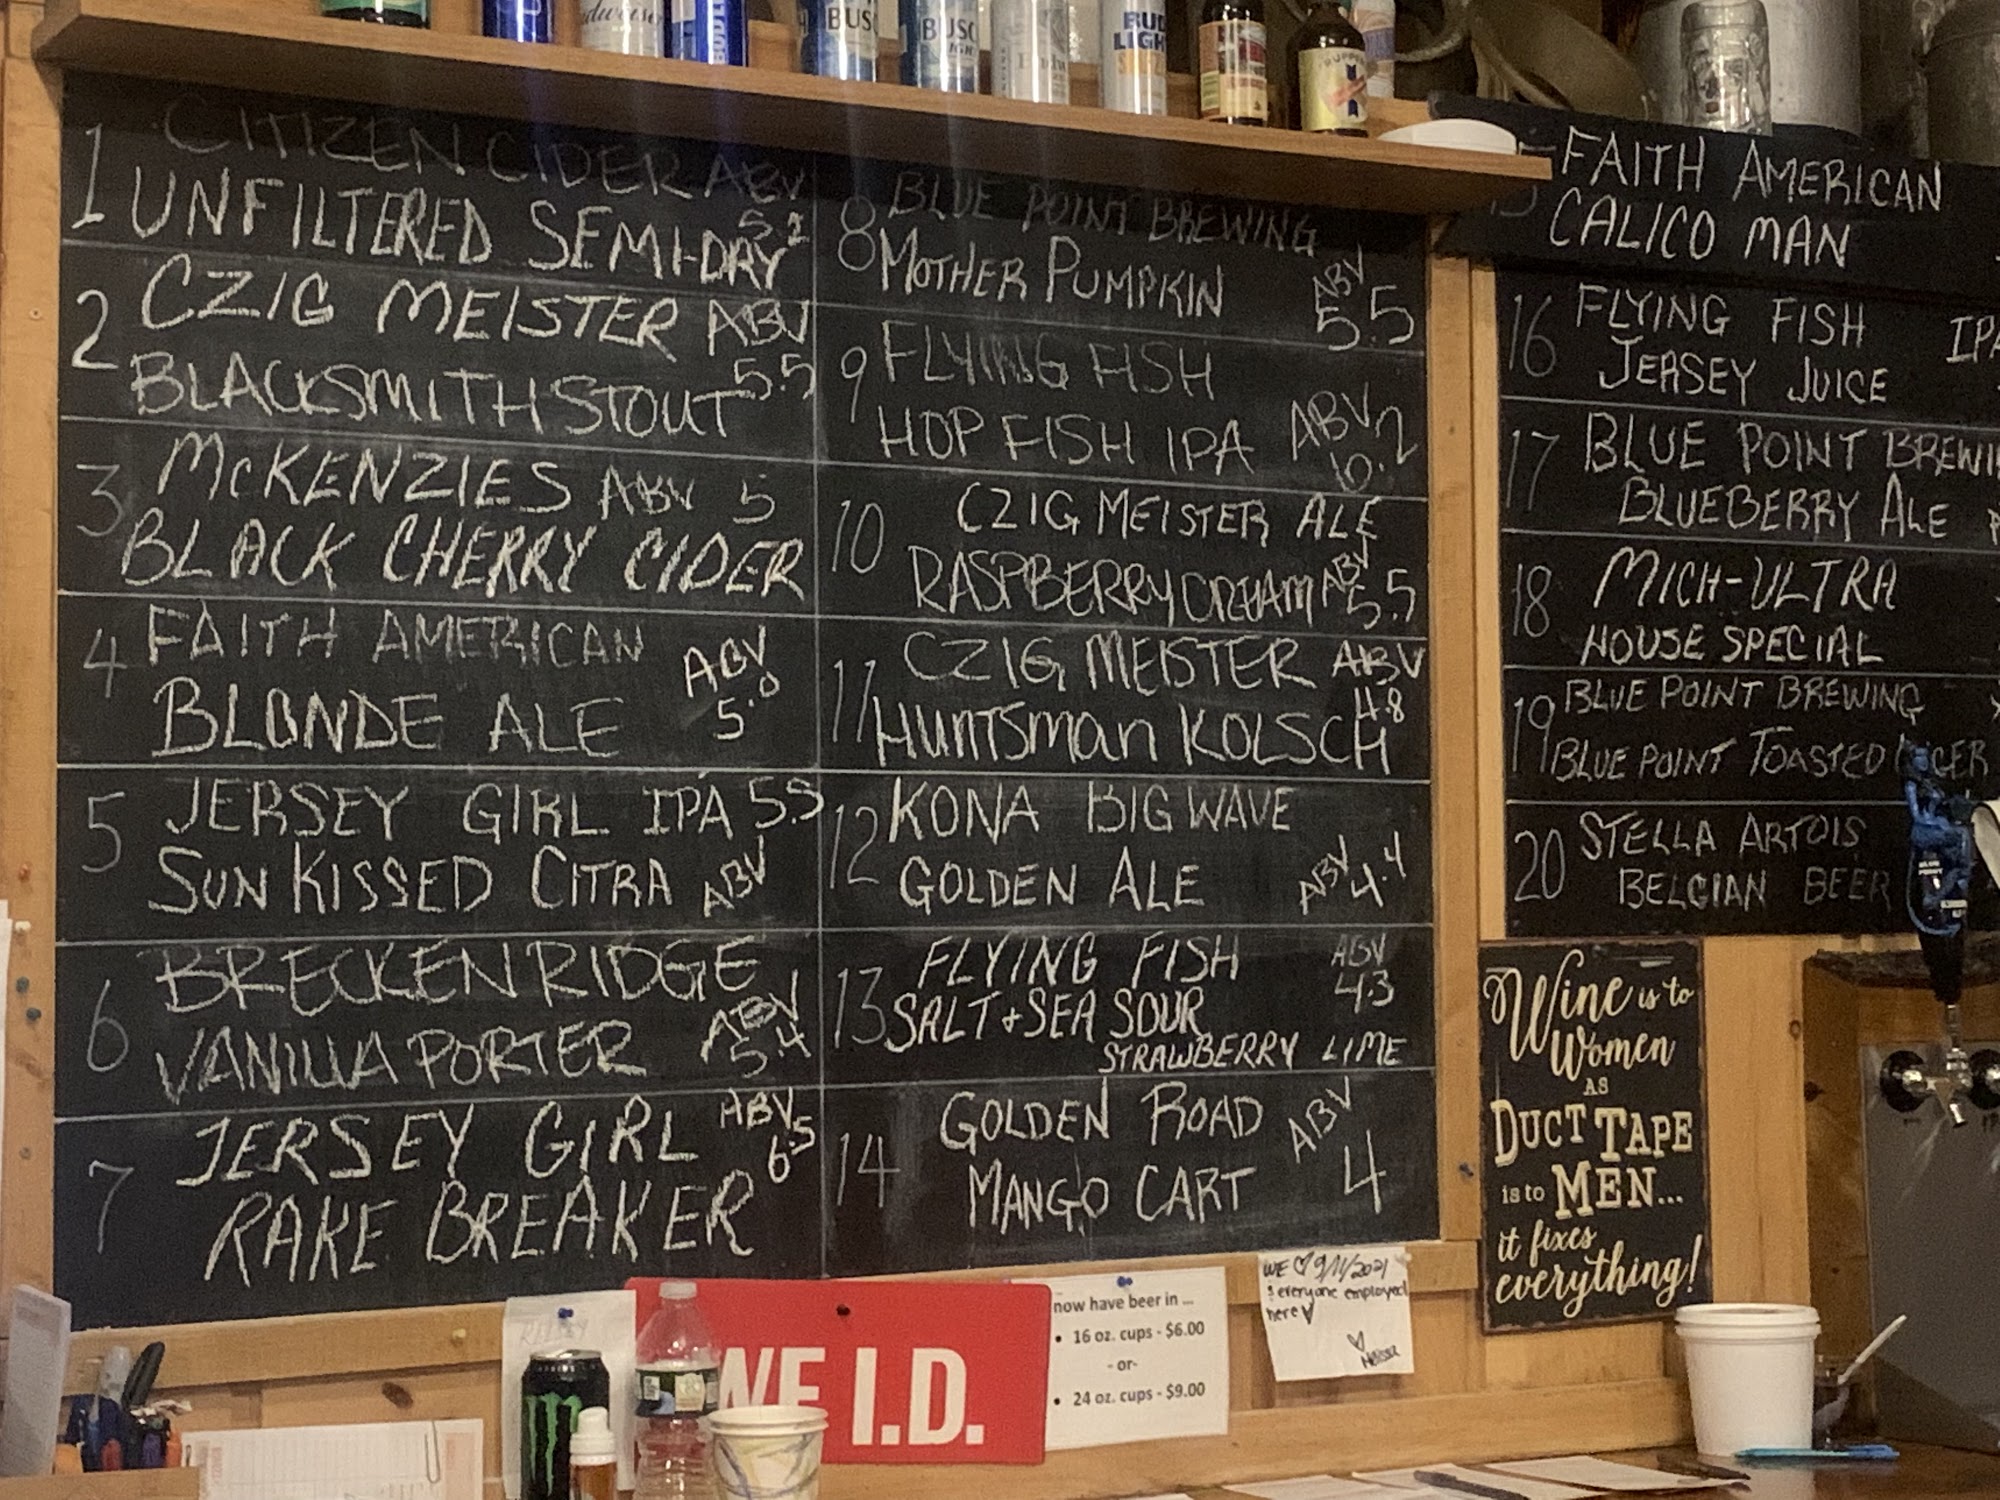 BUSC
BUSC
LIGHT
BUD
LIGHT
1 CITIZEN CIDER ABV
UNFILTERED SEMI-DRY 5.2
2 CZIG MEISTER ABV
BLACKSMITH STOUT 5.5
3 MCKENZIES ABV 5
BLACK CHERRY CIDER
4 FAITH AMERICAN ABV
BLONDE ALE 5.0
5 JERSEY GIRL IPA 5.5
SUN KISSED CITRA ABV
6 BRECKENRIDGE ABV
VANILLA PORTER 5.4
7 JERSEY GIRL ABV 6.5
RAKE BREAKER
8 BLUE POINT BREWING
MOTHER PUMPKIN ABV 5.5
9 FLYING FISH
HOP FISH IPA ABV
10 CZIG MEISTER ALE
RASPBERRY CREAM ABV 5.5
11 CZIG MEISTER ABV 4.8
HUNTSMAN KOLSCH
12 KONA BIG WAVE
GOLDEN ALE ABV 4.4
13 FLYING FISH ABV 4.3
SALT + SEA SOUR
STRAWBERRY LIME
14 GOLDEN ROAD ABV
MANGO CART 4
FAITH AMERICAN
CALICO MAN
16 FLYING FISH IPA
JERSEY JUICE
17 BLUE POINT BREWI
BLUEBERRY ALE
18 MICH-ULTRA
HOUSE SPECIAL
19 BLUE POINT BREWING
BLUE POINT TOASTED
20 STELLA ARTOIS
BELGIAN BEER
Wine is to
Women
AS
DUCT TAPE
is to MEN...
it fixes
everything!
WE I.D.
now have beer in ...
• 16 oz. cups - $6.00
- or-
• 24 oz. cups - $9.00
WE ♡ 9/11/2021
& everyone employed
here ♡
♡